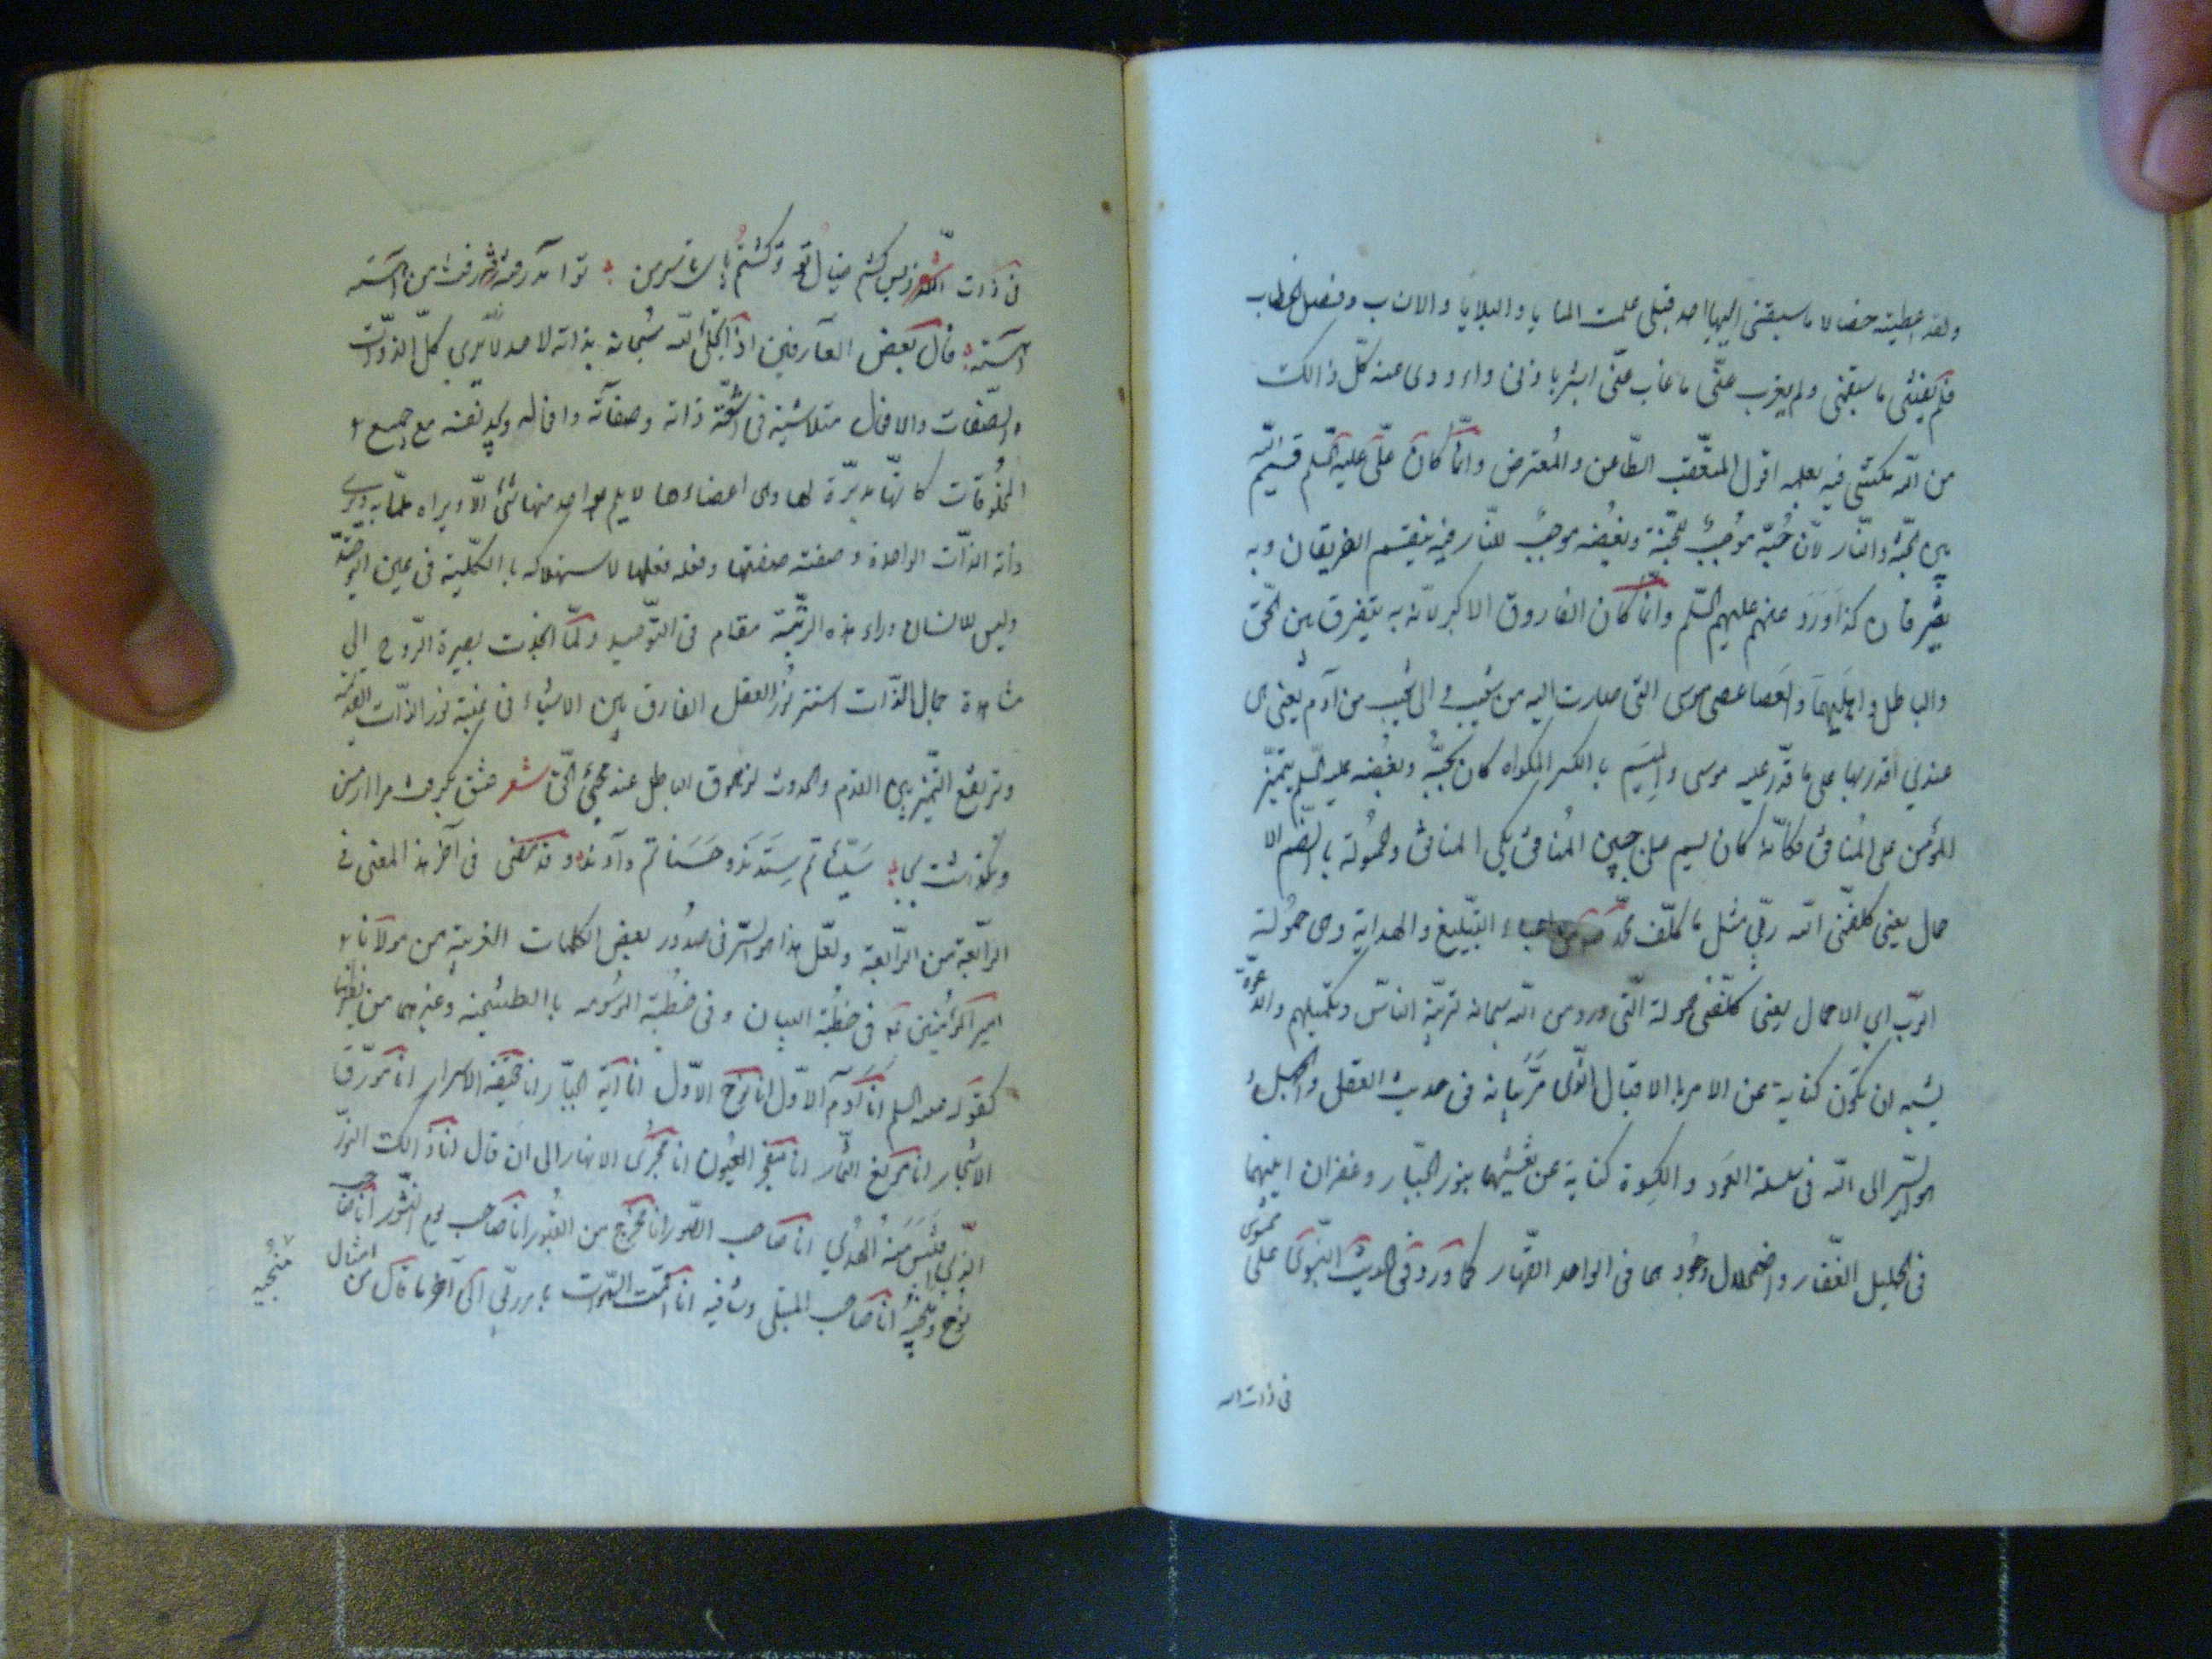 ولقد اعطيته خصالا ما سبقنى اليها احد قبلى علمت المنايا والبلايا والانساب وفصل الخطاب
فلم يفتنى ما سبقنى ولم يعزب عنّى ما غاب عنّى ابشر باذن الله واؤدى عنه كلّ ذالك
من الله مكننى فيه بعلمه اقول المتعقب الطّاعن والمُعترض وانّما كان علىّ عليه السّلم قسيم الله
بين الجنّة والنّار لانّ حُبّه مُوجبٌ للجنّة وبغضه موجبٌ للنّار فبه ينقسم الفريقان وبه
يفترقان كذا وَرَدَ عنهم عليهم السّلم وانّما كان الفاروق الاكبر لانّه به يتفرق بين الحقّ
والباطل واهليهما والعَصا عصى موسى التى صارت اليه من شعيب والى شعيب من آدم يعنى هى
عندى اقدر بها على ما قدّر عليه موسى والميسَم بالكسر المكواه كان بحبّه وبغضه عليه السّلم يتميّز
المؤمن على المُنافق فكانّه كان يسم على جبين المُنافق بكى المنافق وحمُولة بالضّم الا
حمال يعنى كلفنى الله ربّى مثل ما كلّف محمّد من اعباء التبليغ والهداية وهى حمُولة
الربّ اى الاحمال يعنى كلّفنى حمولة الّتى ورد من الله سبحانه لتربيّة الناسّ وتكميلهم والدّعوة
يشبه ان يكون كناية عن الامر بالاقبال الّذى مرّ بيانه فى حديث العقل والجهل
هو السّير الى الله فى سلسلة العَود والكسوة كناية عن تغشّيهما بنور الجبّار وغفران انيتهما
فى الجليل الغفّار واضمحلال وجُودهما فى الواحد القهّار كما ورد فى الحديث النبّوى علىّ ممسُوس
فى ذات الله
فى ذات الله شعر زبس كشتم خيال تو تو كشتم باى تا سر من تو آمد رفته رفته رفت من آهسته
آهسته قال بعض العارفين اذا تجلّى الله سُبحانه بذاته لاحد يرى كلّ الذّوات
والصّفات والافعال متلاشية فى اشعّة ذاته وصفاته وافعاله ويجد نفسه مع جميع
المخلُوقات كانّها مدبّرة لها وهى اعضاءها لا يلم بواحد منها شئ الّا ويراه ملمّا به ويرى
ذاته الذّات الواحدة وصفته صفتها وفعله فعلها لاستهلاكه بالكلّية فى عين التوحيد
وليس للانسان وراء هذه الرتُبة مقام فى التّوحيد ولمّا انجذبت بصيرة الرّوح الى
مشاهدة جمال الذّات استتر نُور العقل الفارق بين الاشياء فى غلبة نور الذّات القديمة
وترتفع التّميز بين القدم والحدوث لزهوق الباطل عند مجئ الحقّ شعر عشق بگرفت مرا از من
وبنشست بجا سَيّئاتم ستدند وحَسَناتم دادند وقد مضى فى آخر هذا المعنى فى
الرّابعة من الرّابعة ولعّل هذا هو السّر فى صدُور بعض الكلمات الغريبة من مولانا
امير المؤمنين فى خطبة البيان وفى خطبة الموسُومه بالططنجيّة وغيرهما من نظائرهما
كقوله عليه السلم انا آدم الاوّل انا نوح الاوّل انا آية الجبّار انا حقيقة الاسرار انا مورّق
الاشجار انا مونع الثّمار انا مفجّر العيُون انا مجرى الانهار الى ان قال انا ذالك النّور
الّذى اقتَبسَ منه الهُدى انا صاحب الصّور انا مخرج من القبُور انا صاحب يوم النشُور انا صاحب
نوح ومنجيه انا صاحب ايّوب المبتلى وشافيه انا اقمت السّموات بامر ربّى الى آخر ما قال من امثال
مُنجيه